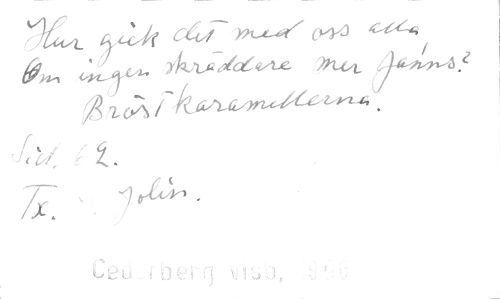 Hur gick det med oss alla
Om ingen skräddare mer fanns?
Bröstkaramellerna.
Sid. 62.
Tx. Jolin.
Cederberg visb,